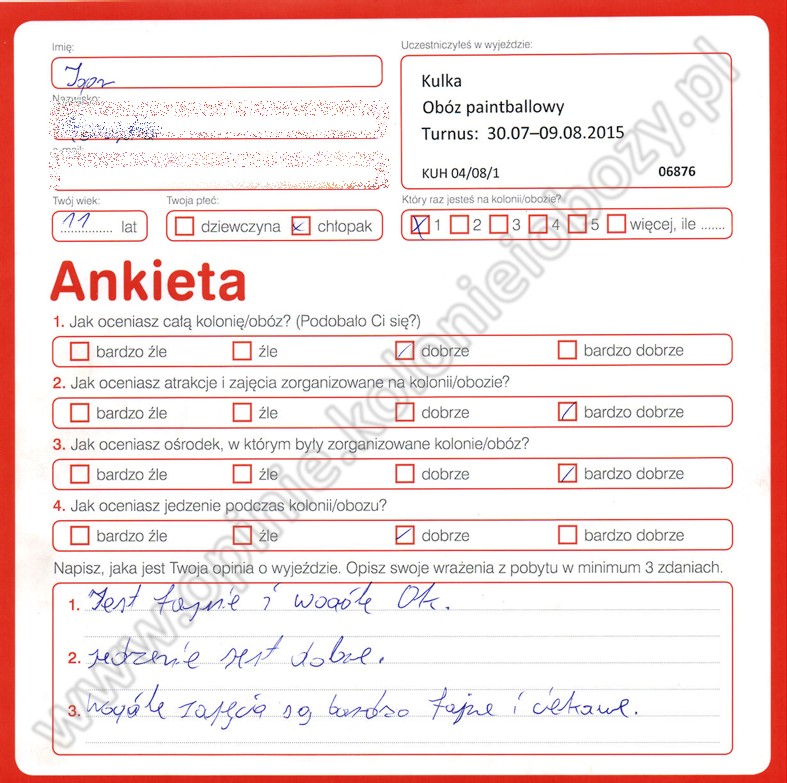 Imię:
Uczestniczyłeś w wyjeździe:
Igor
Kulka
Obóz paintballowy
Turnus: 30.07–09.08.2015
KUH 04/08/1 06876
Nazwisko:
e-mail:
Twój wiek: Twoja płeć: Który raz jesteś na kolonii/obozie?
11 lat dziewczyna x chłopak X 1 2 3 4 5 więcej, ile .......
Ankieta
1. Jak oceniasz całą kolonię/obóz? (Podobało Ci się?)
bardzo źle źle dobrze bardzo dobrze
2. Jak oceniasz atrakcje i zajęcia zorganizowane na kolonii/obozie?
bardzo źle źle dobrze bardzo dobrze
3. Jak oceniasz ośrodek, w którym były zorganizowane kolonie/obóz?
bardzo źle źle dobrze bardzo dobrze
4. Jak oceniasz jedzenie podczas kolonii/obozu?
bardzo źle źle dobrze bardzo dobrze
Napisz, jaka jest Twoja opinia o wyjeździe. Opisz swoje wrażenia z pobytu w minimum 3 zdaniach.
1. Jest fajnie i wogóle Ok.
2. jedzenie jest dobre.
3. wogóle zajęcia są bardzo fajne i ciekawe.
www.opinie.kolonieiobozy.pl